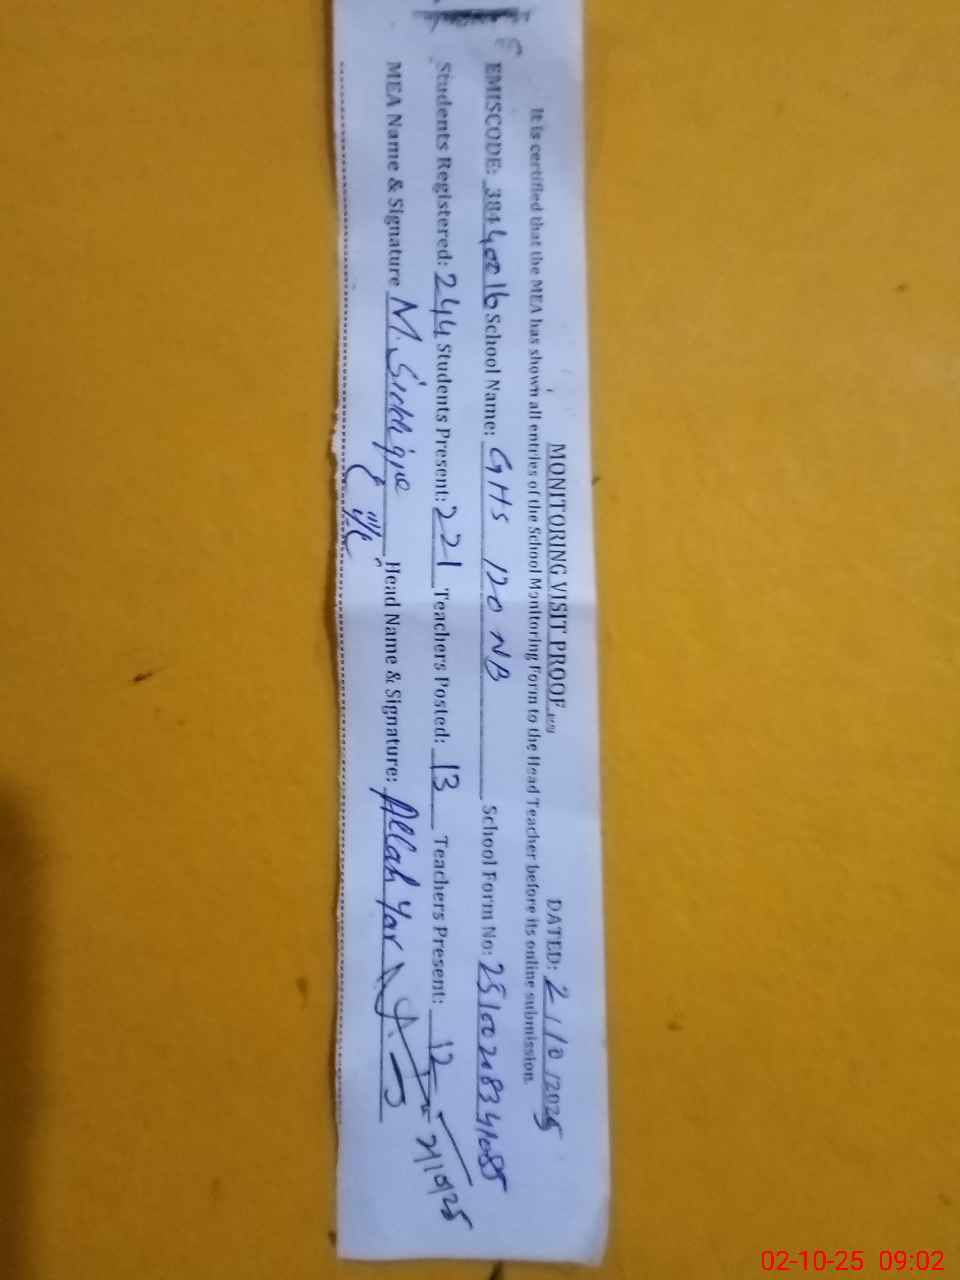 MONITORING VISIT PROOF DATED: 2/10/2025
It is certified that the MEA has shown all entries of the School Monitoring Form to the Head Teacher before its online submission.
EMISCODE: 38440016 School Name: GHS 120 NB School Form No:
Students Registered: 244 Students Present: 221 Teachers Posted: 13 Teachers Present: 12
MEA Name & Signature M. Siddique Head Name & Signature: Allah Yar
2/10/25
02-10-25 09:02